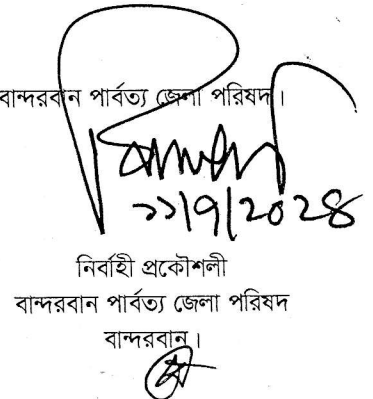 বান্দরবান পার্বত্য জেলা পরিষদ।
১১/৭/২০২৪
নির্বাহী প্রকৌশলী
বান্দরবান পার্বত্য জেলা পরিষদ
বান্দরবান।